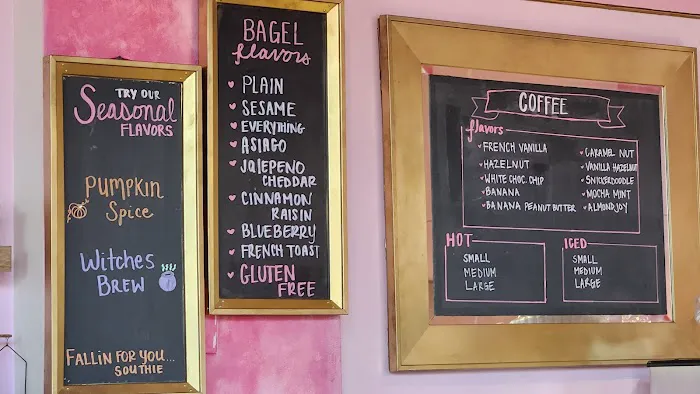 TRY OUR
SEASONAL
FLAVORS
PUMPKIN
SPICE
WITCHES
BREW
FALLIN FOR YOU...
SOUTHIE
BAGEL
flavors
PLAIN
SESAME
EVERYTHING
ASIAGO
JALEPENO
CHEDDAR
CINNAMON
RAISIN
BLUEBERRY
FRENCH TOAST
GLUTEN
FREE
COFFEE
flavors
FRENCH VANILLA
HAZELNUT
WHITE CHOC. CHIP
BANANA
BANANA PEANUT BUTTER
CARAMEL NUT
VANILLA HAZELNUT
SNICKERDOODLE
MOCHA MINT
ALMOND JOY
HOT
SMALL
MEDIUM
LARGE
ICED
SMALL
MEDIUM
LARGE